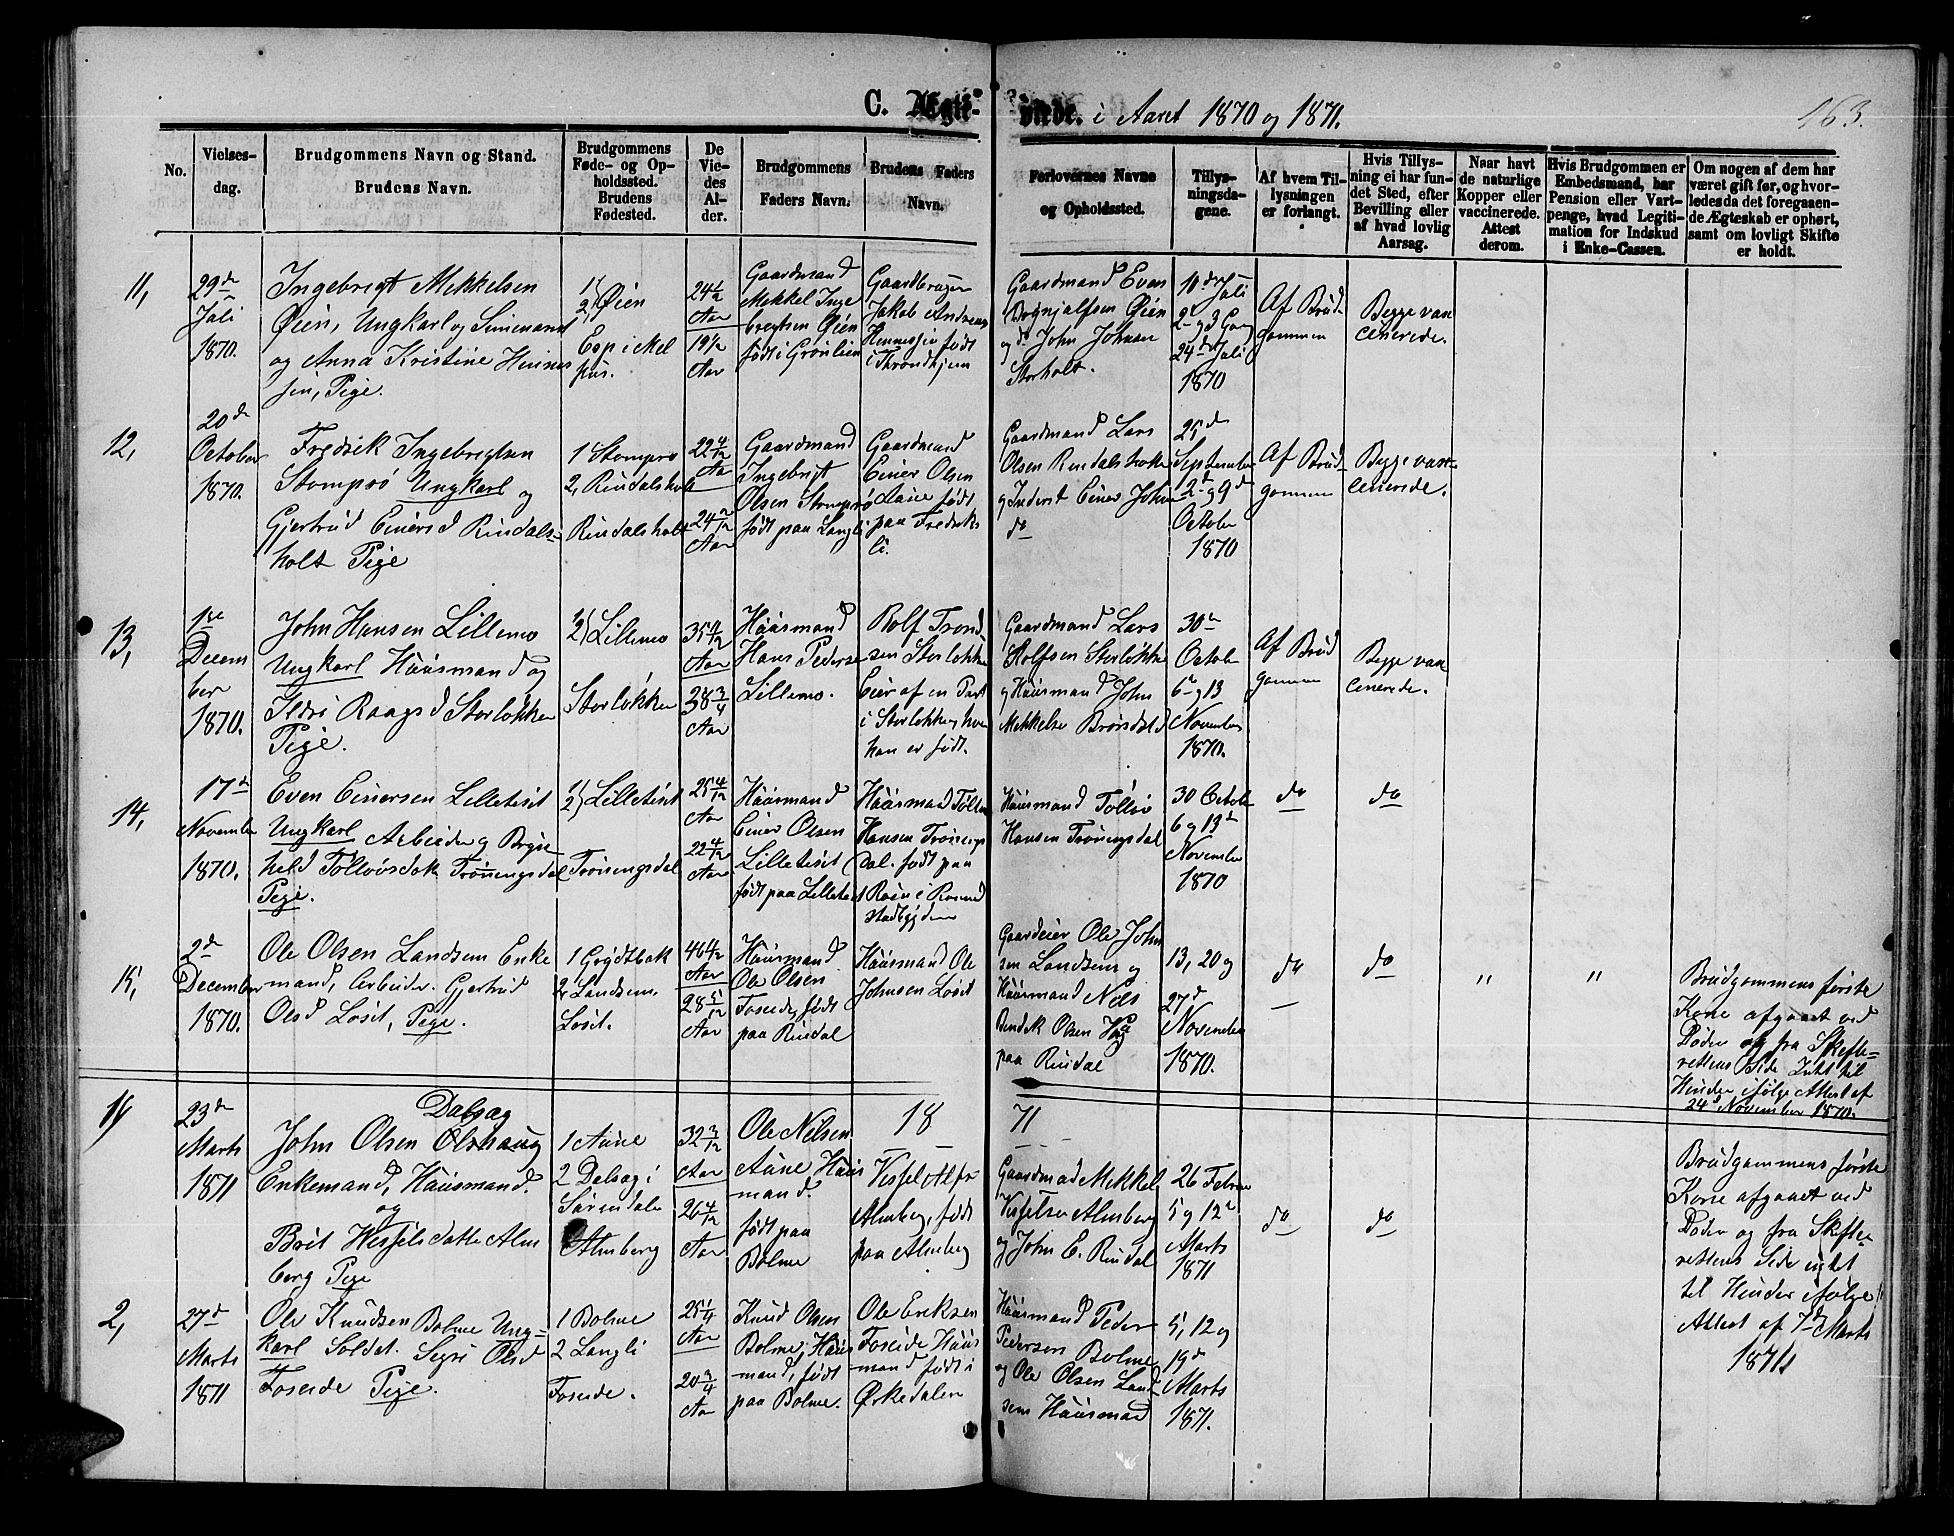 C. Ægte- viede. i Aaret 1870 og 1871.
163.
No.
Vielses-
dag.
Brudgommens Navn og Stand.
Brudens Navn.
Brudgommens
Føde- og Op-
holdssted.
Brudens
Fødested.
De
Vie-
des
Al-
der.
Brudgommens
Faders Navn.
Brudens Faders
Navn.
Forlovernes Navne
og Opholdssted.
Tillys-
ningsda-
gene.
Af hvem Til-
lysningen
er forlangt.
Hvis Tillys-
ning ei har fun-
det Sted, efter
Bevilling eller
af hvad lovlig
Aarsag.
Naar havt
de naturlige
Kopper eller
vaccinerede.
Attest
derom.
Hvis Brudgommen er
Embedsmand, har
Pension eller Vart-
penge, hvad Legiti-
mation for Indskud
i Enke-Cassen.
Om nogen af dem har
været gift før, og hvor-
ledes da det foregaaen-
de Ægteskab er ophørt,
samt om lovligt Skifte
er holdt.
11,
29de
Juli
1870.
Ingebrigt Mekkelsen
Øien, Ungkarl og
og Anna Kristine Hennes
sen, Pige.
1)
2) Øien
24 1/2
Aar
19 1/2
Aar
Gaardmand
Mekkel Inge
brigtsen Øien
født i Grønlien
Gaardbruger
Jakob Andreas
født
i Throndhjem
Gaardmand Even
Øien
og do John Johnsen
Storholt.
10de Juli
2 og 3 Gang
24de Juli
1870
Af Brud-
gommen
Begge vac
cinerede.
12,
20de
October
1870.
Fredrik Ingebrigtsen
Stomprø Ungkarl og
Gjertrud Einersd Rindals-
holt Pige
1 Stomprø
2, Rindalsholt
Rindalsholt
22 4/12
Aar
24 2/12
Aar
Gaardmand
Ingebrigt
Olsen Stomprø
født paa Langli
Gaardmand
Einer Olsen
født
paa Fredriks
li.
Gaardmand Lars
Olsen Rindalsholt
og Inderst Einer Johnsen
do
25de
September
2de og 9de
October
1870
Af Brud-
gommen
Begge vac-
cinerede.
13,
1ste
Decem
ber
1870.
John Hansen Lillemo
Ungkarl Huusmand og
Ildri Raagsd Storløkken
Pige.
1)
2) Lillemo
Storløkken
35
Aar
38 3/4
Aar
Huusmand
Hans Pedersen
Lillemo.
Rolf Trond
sen Storløkken
Eier af en Part
i Storløkken, hvor
han er født.
Gaardmand Lars
Rolfsen Storløkken
og Huusmand John
Mekkelsen Brønstad
30te
October
6te og 13
November
1870.
Af Brud
gommen
Begge vac
cinerede.
14,
17de
November
1870.
Even Einersen Lilletiset
Ungkarl Arbeider og Bryn
hild Tollevsdok Trønengsdal
Pige.
1)
2) Lilletiset
Trønengsdal
25 4/12
Aar
22 4/12
Aar
Huusmand
Einer Olsen
Lilletiset
født paa Lilletiset
Huusmand
Hansen Trønengs
dal. født paa
Røen i
Huusmand
Hansen Trønengsdal
30 October
6 og 13de
November
1870
do
do
15,
2de
December
1870.
Ole Olsen Landsem Enke
mand, Arbeider. Gjertrud
Olsd Løset, Pige.
1 Grytbak
2, Landsem.
Løset.
46 4/12
Aar
28 5/12
Aar
Huusmand
Ole Olsen
Foseide, født
paa Rindal
Huusmand Ole
Johnsen Løset
Gaardeier Ole John
sen Landsem og
Huusmand Nils
Bendik Olsen Hag
paa Rindal
13, 20 og
27de
November
1870.
do
do
"
"
Brudgommens første
Kone afgaaet ved
Døden og fra Skifte-
rettens Side Intet til
Hinder, ifølge Attest af
24de November 1870.
18 71
23de
Marts
1871
Dalsag
John Olsen Olshaug
Enkemand, Huusmand.
og
Brit Wesselsdatter Alm
berg Pige
1 Aune
2 Dalsag i
Surendalen
Almberg
32 3/12
Aar
26 4/12
Aar
Ole Nelsen
Aune Huus
mand.
født paa
Bolme
Vessel
Almberg, født
paa Almberg
Gaardmad Mekkel
Vesselsen Almberg
og John E. Rindal
26 Februar
5 og 12te
Marts
1871
do
do
Brudgommens første
Kone afgaaet ved
Døden og fra Skifte-
rettens Side intet
til Hinder ifølge
Attest af 7de Marts
1871
2,
27de
Marts
1871
Ole Knudsen Bolme Ung-
karl Soldat. Sigri Olsd
Foseide Pige.
1 Bolme
2 Langli
Foseide.
25 1/4
Aar
20 3/4
Aar
Knud Olsen
Bolme, Huus
mand, født
paa Bolme.
Ole Eriksen
Foseide Huus
mand født i
Ørkedalen
Huusmand Peder
Pedersen Bolme
og Ole Olsen Land
sem Huusmand
5, 12 og
19de
Marts
1871.